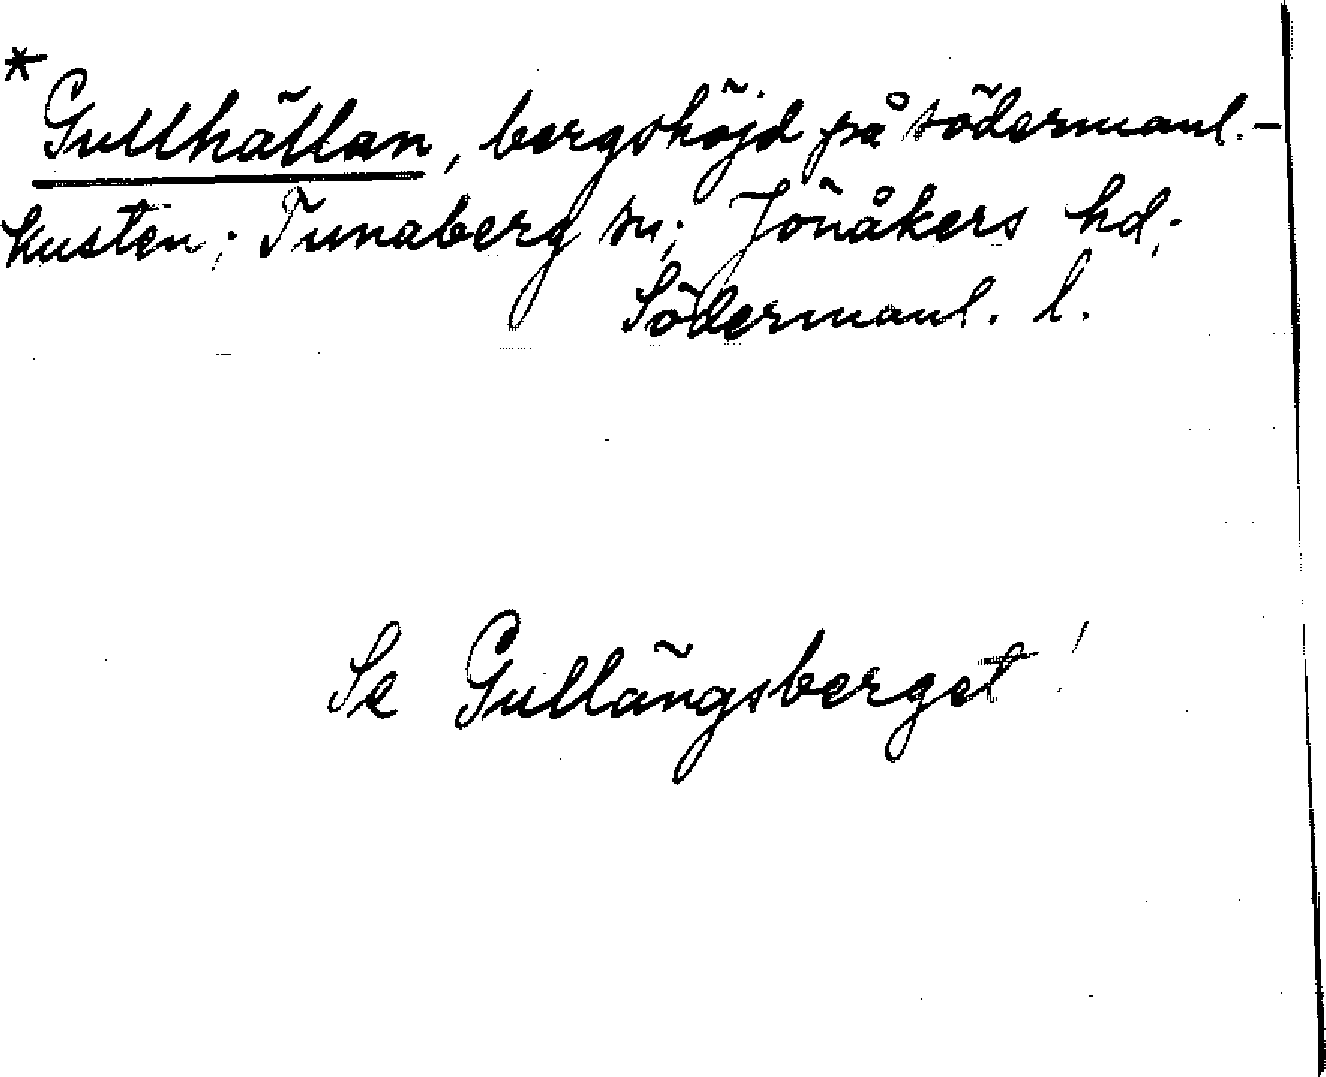 * Gullhällan, bergshöjd på södermanl.-
kusten; Tunaberg sn; Jönåkers hd;
Södermanl. l.
Se Gullängsberget!